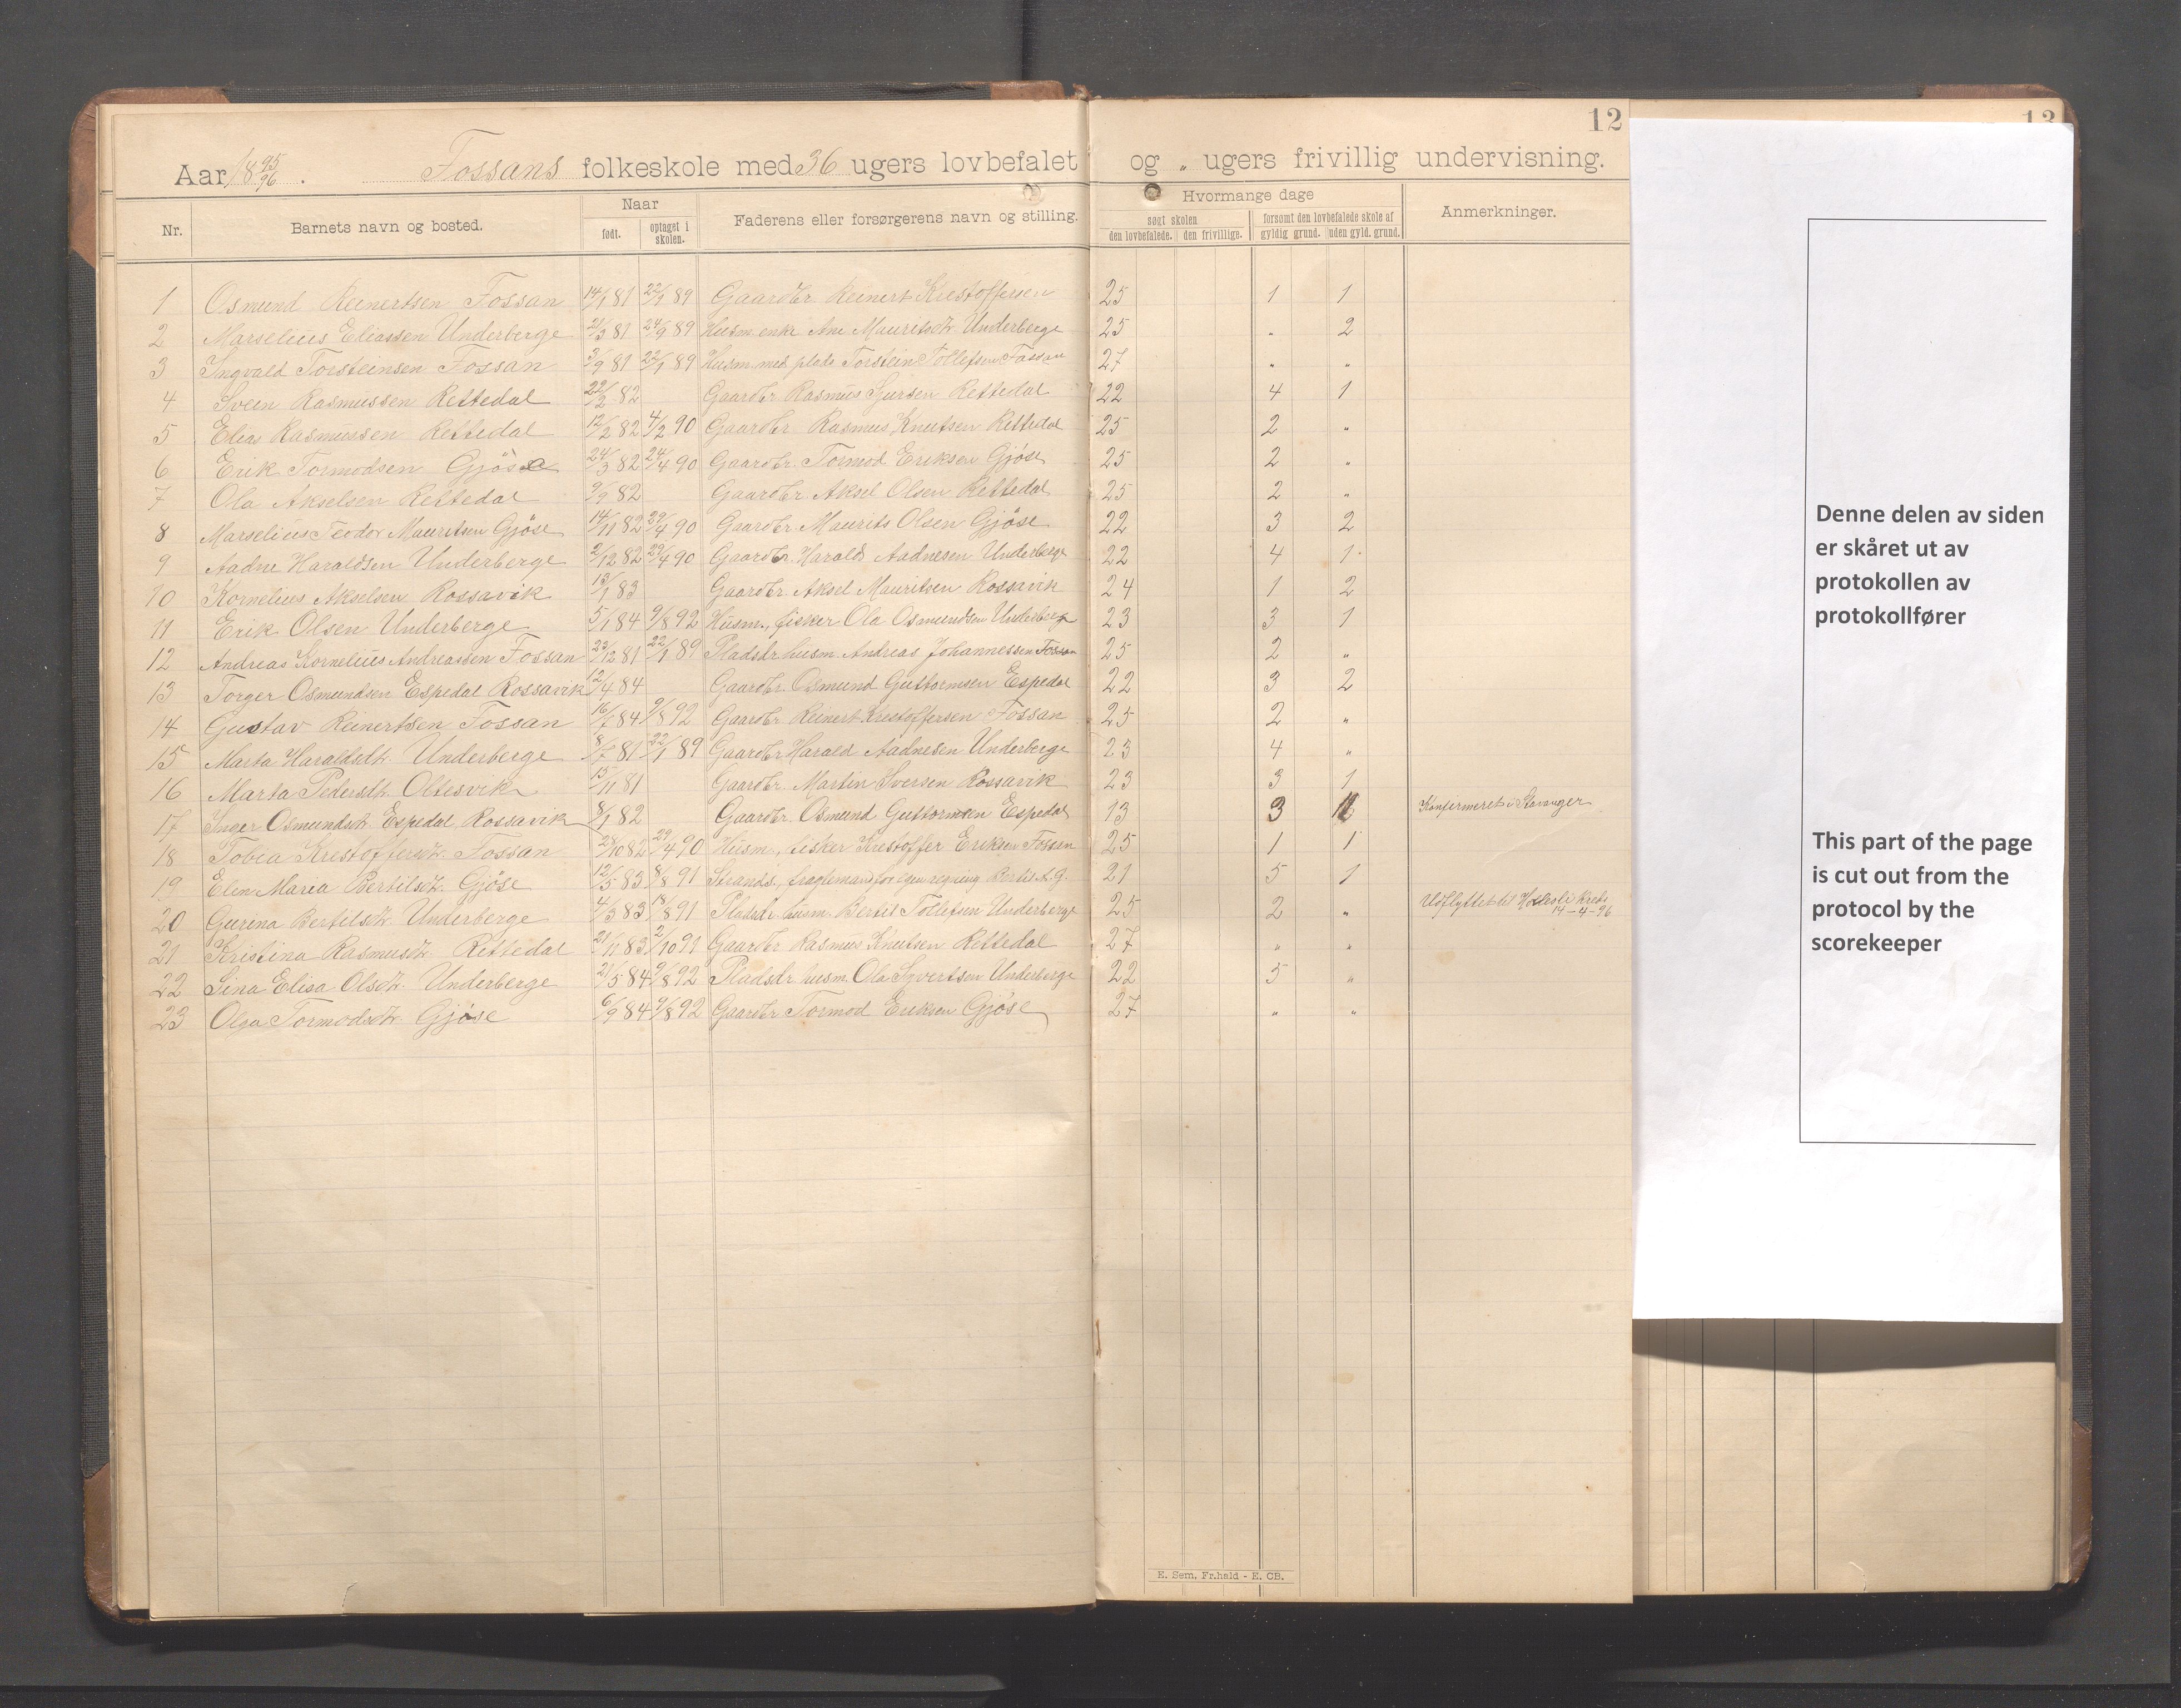 12
13
Aar 18 95/96. Fossans folkeskole med 36 ugers lovbefalet og „ ugers frivillig undervisning.
Nr. Barnets navn og bosted. Naar født. optaget i skolen. Faderens eller forsørgerens navn og stilling. Hvormange dage søgt skolen den lovbefalede. den frivillige. forsømt den lovbefalede skole af gyldig grund. uden gyld. grund. Anmerkninger.
1 Osmund Reinertsen Fossan 14/1 81 22/1 89 Gaardbr. Reinert Krestoffersen 25 1 1
2 Marselius Eliassen Underberge 21/3 81 24/9 89 Husm. enke Ane Mauritsdt. Underberge 25 „ 2
3 Ingvald Torsteinsen Fossan 3/9 81 22/1 89 Husm. med plads Torstein Tollefsen Fossan 27 „ „
4 Sveen Rasmussen Rettedal 22/2 82 Gaardbr. Rasmus Sjursen Rettedal 22 4 1
5 Elias Rasmussen Rettedal 12/2 82 4/2 90 Gaardbr. Rasmus Knutsen Rettedal 25 2 „
6 Erik Tormodsen Gjöse 24/3 82 24/4 90 Gaardbr. Tormod Eriksen Gjöse 25 2 „
7 Ola Akselsen Rettedal 9/9 82 Gaardbr. Aksel Olsen Rettedal 25 2 „
8 Marselius Teodor Mauritsen Gjöse 14/11 82 29/4 90 Gaardbr. Maurits Olsen Gjöse 22 3 2
9 Aadne Haraldsen Underberge 2/12 82 29/4 90 Gaardbr. Harald Aadnesen Underberge 22 4 1
10 Kornelius Akselsen Rossavik 13/1 83 Gaardbr. Aksel Mauritsen Rossavik 24 1 2
11 Erik Olsen Underberge 5/1 84 9/8 92 Husm., fisker Ola Osmundsen Underberge 23 3 1
12 Andreas Kornelius Andreassen Fossan 23/12 81 22/1 89 Pladsbr. husm. Andreas Johannessen Fossan 25 2 „
13 Torger Osmundsen Espedal Rossavik 12/4 84 Gaardbr. Osmund Guttormsen Espedal 22 3 2
14 Gustav Reinertsen Fossan 84 9/8 92 Gaardbr. Reinert Krestoffersen Fossan 25 2 „
15 Marta Haraldsdt. Underberge 8/7 81 22/1 89 Gaardbr. Harald Aadnesen Underberge 23 4 „
16 Marta Pedersdt. Oltesvik 15/11 81 Gaardbr. Martin Sversen Rossavik 23 3 1
17 Inger Osmundsdt. Espedal Rossavik 8/1 82 Gaardbr. Osmund Guttormsen Espedal 13 3 Konfirmeret i Stavanger
18 Tobea Krestoffersdt. Fossan 82 29/4 90 Husm., fisker Krestoffer Eriksen Fossan 25 1 1
19 Elen Maria Bertilsdt. Gjöse 12/5 83 8/8 91 Strands., fragtemand for egen regning Bertil A. G. 21 5 1
20 Gurina Bertilsdt. Underberge 4/3 83 18/8 91 Pladsbr. husm. Bertil Tollefsen Underberge 25 2 „ Udflyttet til Holesli Kreds
14-4-96
21 Kristina Rasmusdt. Rettedal 21/11 83 2/10 91 Gaardbr. Rasmus Knutsen Rettedal 27 „ „
22 Sina Elisa Olsdt. Underberge 21/5 84 9/8 92 Pladsbr. husm. Ola Syvertsen Underberge 22 5 „
23 Olga Tormodsdt. Gjöse 6/9 84 9/8 92 Gaardbr. Tormod Eriksen Gjöse 27 „ „
E. Sem, Fr.hald - E. CB.
Denne delen av siden
er skåret ut av
protokollen av
protokollfører
This part of the page
is cut out from the
protocol by the
scorekeeper